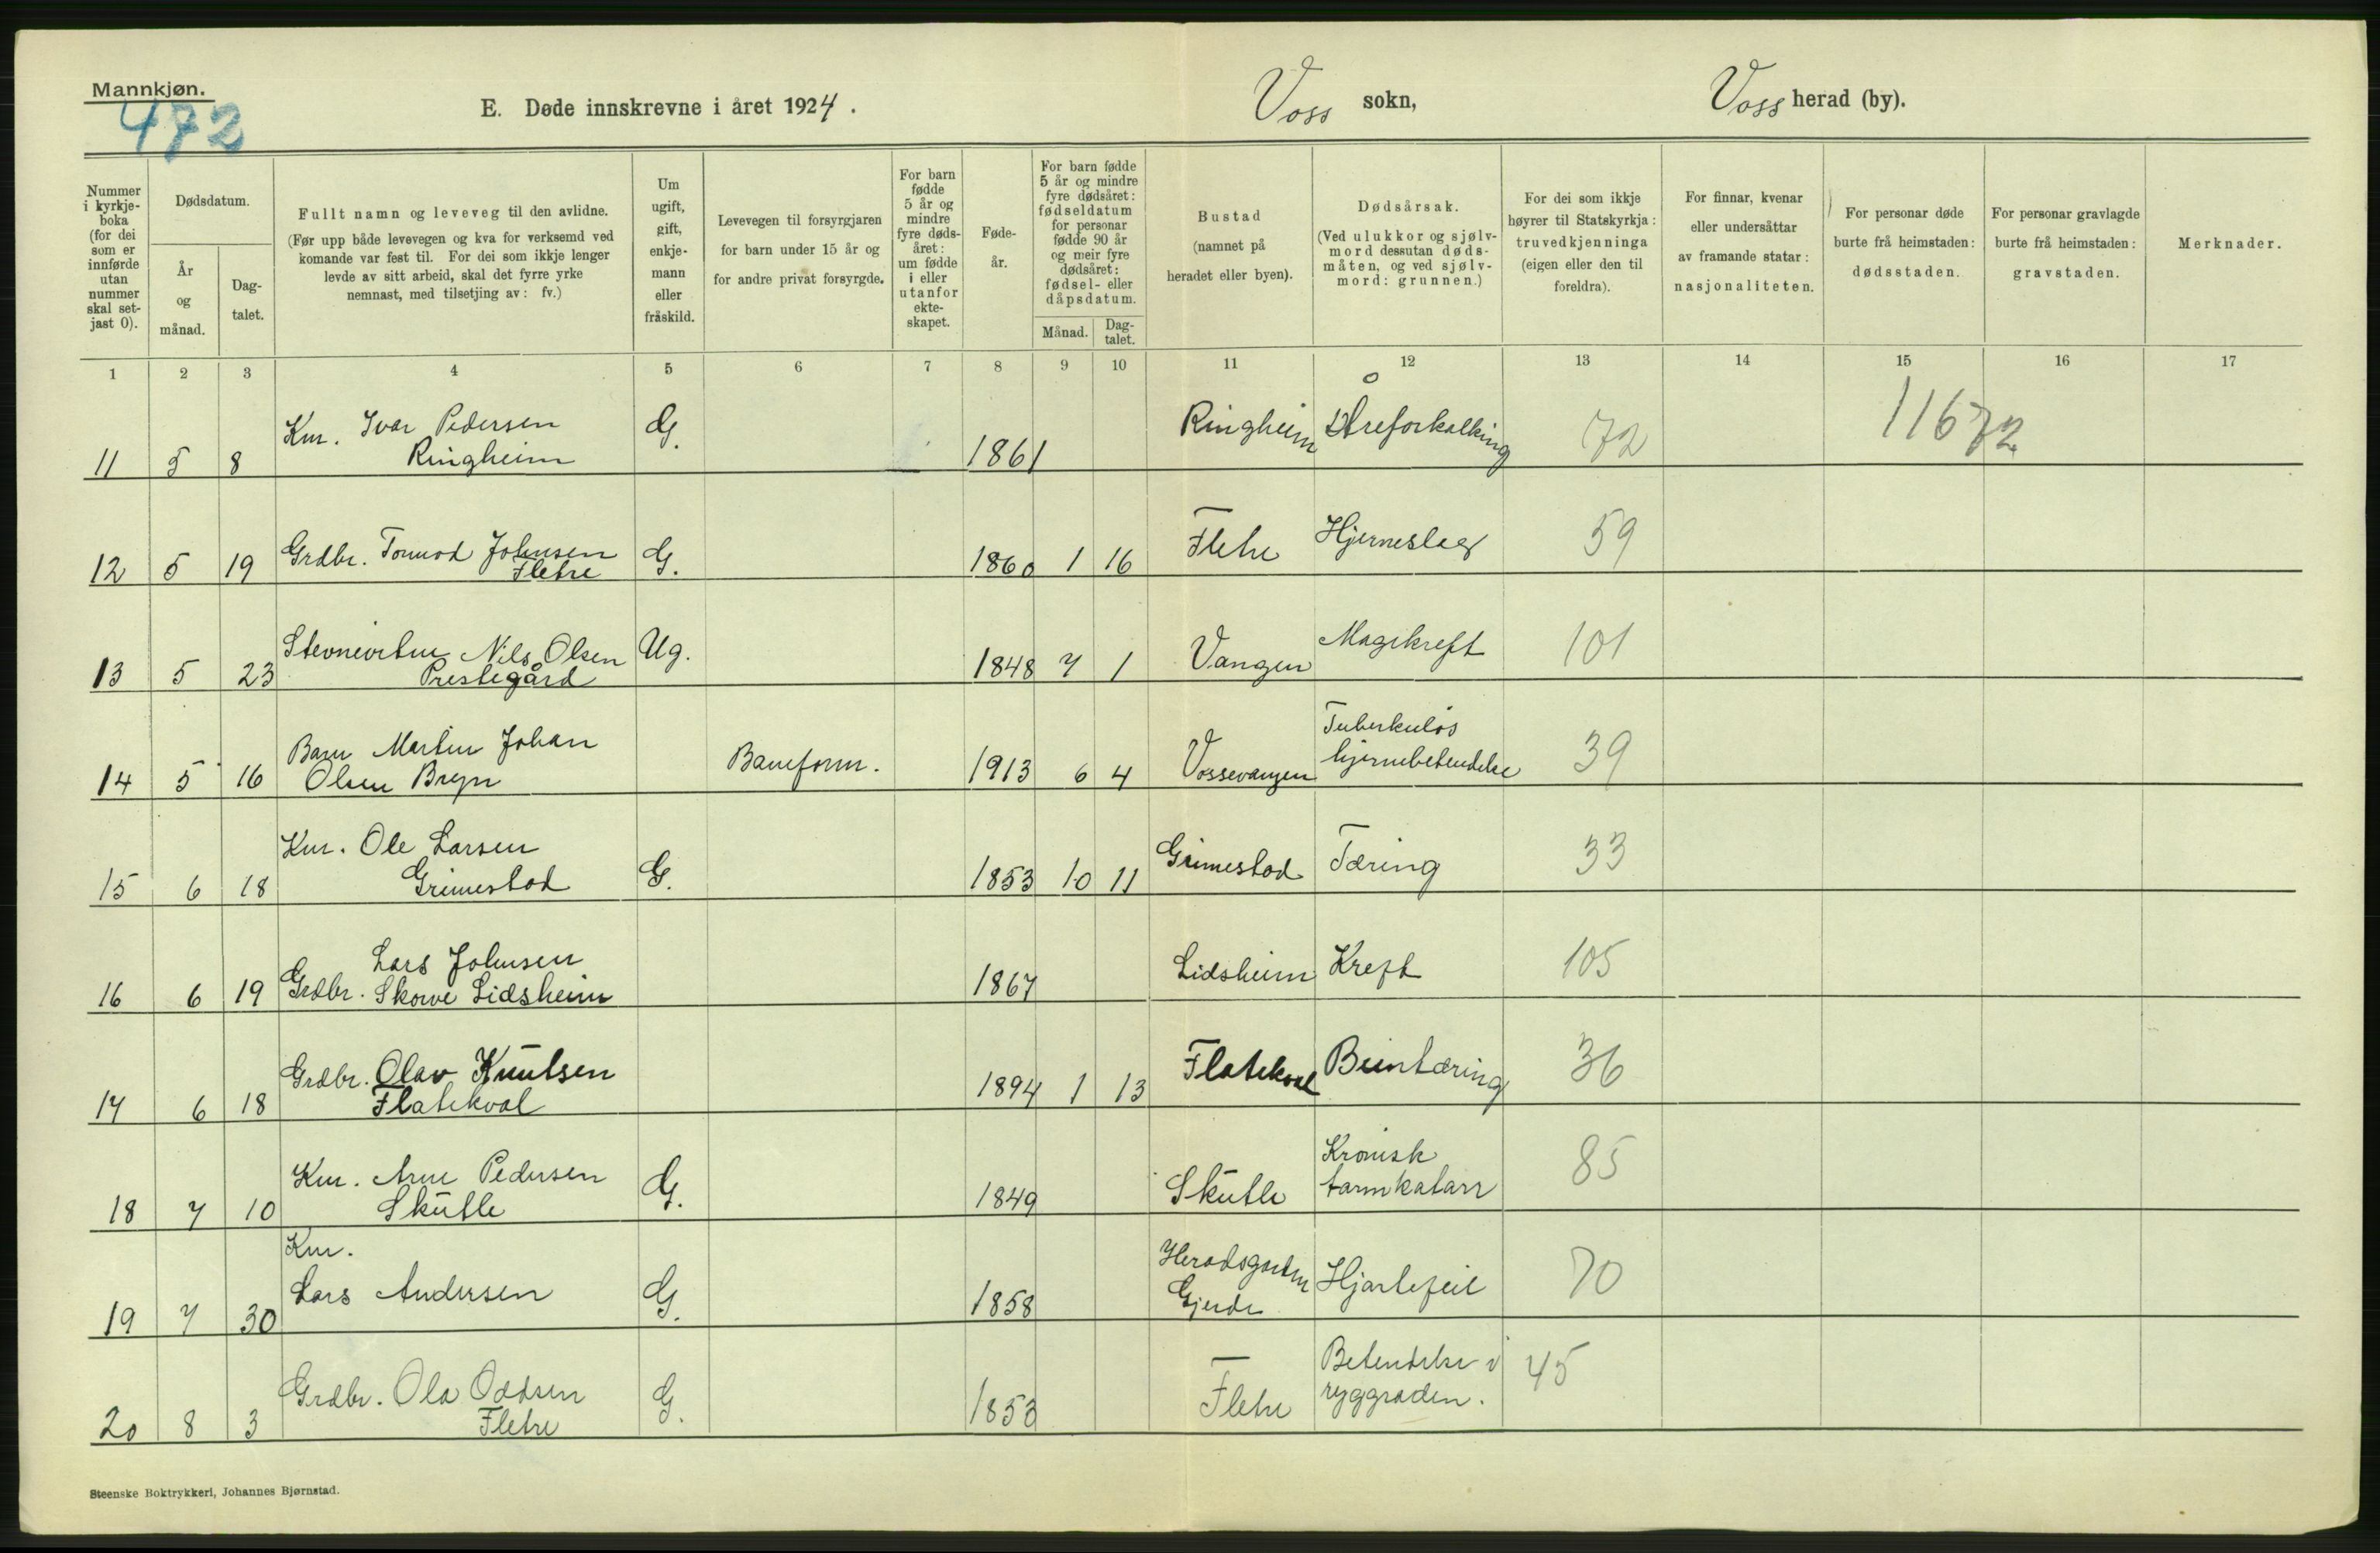 Mannkjøn.
472
E. Døde innskrevne i året 1924.
Voss sokn,
Voss herad (by).
Nummer i kyrkje-
boka
(for dei
som er
innførde
utan
nummer
skal set-
jast 0).
Dødsdatum.
År
og
månad.
Dag-
talet.
Fullt namn og leveveg til den avlidne.
(Før upp både levevegen og kva for verksemd ved
komande var fest til. For dei som ikkje lenger
levde av sitt arbeid, skal det fyrre yrke
nemnast, med tilsetjing av: fv.)
Um
ugift,
gift,
enkje-
mann
eller
fråskild.
Levevegen til forsyrgjaren
for barn under 15 år og
for andre privat forsyrgde.
For barn
fødde
5 år og
mindre
fyre døds-
året:
um fødde
i eller
utanfor
ekte-
skapet.
Føde-
år.
For barn fødde
5 år og mindre
fyre dødsåret:
fødseldatum
for personar
fødde 90 år
og meir fyre
dødsåret:
fødsel- eller
dåpsdatum.
Månad.
Dag-
talet.
Bustad
(namnet på
heradet eller byen).
Dødsårsak.
(Ved ulukkor og sjølv-
mord dessutan døds-
måten, og ved sjølv-
mord: grunnen.)
For dei som ikkje
høyrer til Statskyrkja:
truvedkjenninga
(eigen eller den til
foreldra).
For finnar, kvenar
eller undersåttar
av framande statar:
nasjonaliteten.
For personar døde
burte frå heimstaden:
dødsstaden.
For personar gravlagde
burte frå heimstaden:
gravstaden.
Merknader.
1 2 3 4 5 6 7 8 9 10 11 12 13 14 15 16 17
11 5 8 Km. Ivar Pedersen
Ringheim G. 1861 Ringheim Åreforkalking 72 11672
12 5 19 Grdbr. Tormod Johnsen
Fletre G. 1860 1 16 Fletre Hjerneslag 59
13 5 23 Stevnevitne Nils Olsen
Prestegård Ug. 1848 7 1 Vangen Magekreft 101
14 5 16 Barn Martin Johan
Olsen Bryn Baneform. 1913 6 4 Vossevangen Tuberkuløs
hjernebetendelse 39
15 6 18 Km. Ole Larsen
Grimestad G. 1853 10 11 Grimestad Tæring 33
16 6 19 Lars Johnsen
Grdbr. Skorve Lidsheim 1867 Lidsheim Kreft 105
17 6 18 Grdbr. Olav Knutsen
Flatekval 1894 1 13 Flatekval Beintæring 36
18 7 10 Km. Arne Pedersen
Skutle G. 1849 Skutle Kronisk
tarmkatarr 85
19 7 30 Km.
Lars Andersen G. 1858 Heradsgarden
Gjerde Hjartefeil 70
20 8 3 Grdbr. Ola Oddsen
Fletre G. 1853 Fletre Betendelse i
ryggraden. 45
Steenske Boktrykkeri, Johannes Bjørnstad.